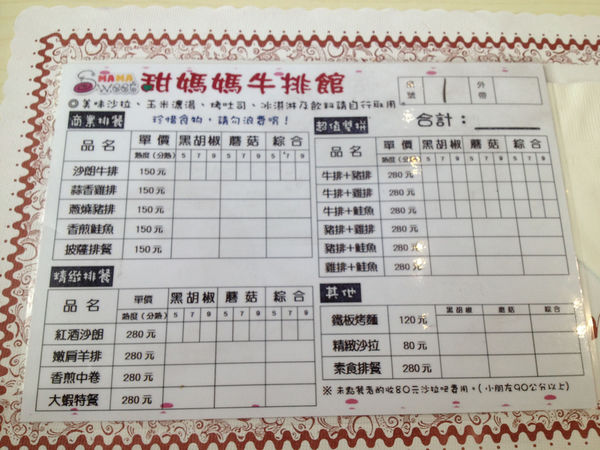 MAMA Sweet 甜媽媽牛排館
號 1 外帶
◎美味沙拉、玉米濃湯、烤吐司、冰淇淋及飲料請自行取用。
商業排餐 珍惜食物,請勿浪費喔!
品名 單價 黑胡椒 蘑菇 綜合
熟度(分熟) 5 7 9 5 7 9 5 7 9
沙朗牛排 150元
蒜香雞排 150元
薑燒豬排 150元
香煎鮭魚 150元
披薩排餐 150元
精緻排餐
品名 單價 黑胡椒 蘑菇 綜合
熟度(分熟) 5 7 9 5 7 9 5 7 9
紅酒沙朗 280元
嫩肩羊排 280元
香煎中卷 280元
大蝦特餐 280元
超值雙拼 合計:
品名 單價 黑胡椒 蘑菇 綜合
熟度(分熟) 5 7 9 5 7 9 5 7 9
牛排+豬排 280元
牛排+雞排 280元
牛排+鮭魚 280元
豬排+雞排 280元
豬排+鮭魚 280元
雞排+鮭魚 280元
其他
黑胡椒 蘑菇 綜合
鐵板烤麵 120元
精緻沙拉 80元
素食排餐 280元
※未點餐者酌收80元沙拉吧費用。(小朋友90公分以上)